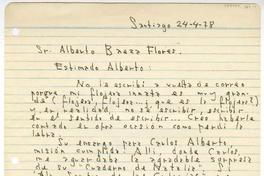 Santiago 24-4-78
Sr. Alberto Baeza Flores.
Estimado Alberto:
No le escribí a vuelta de correo
porque mi flojera innata es muy gran-
de (flojera, flojera... ¿qué es la flojera?)
y en realidad, no sé escribir, escribir
en el sentido de escribir... Creo haberle
contado en otra ocasión como perdí la
letra.
Su encargo para Carlos Alberto,
misión cumplida. Allí, donde Carlos,
me aguardaba la agradable sorpresa
de su "Cuaderno de Natalia". Sí